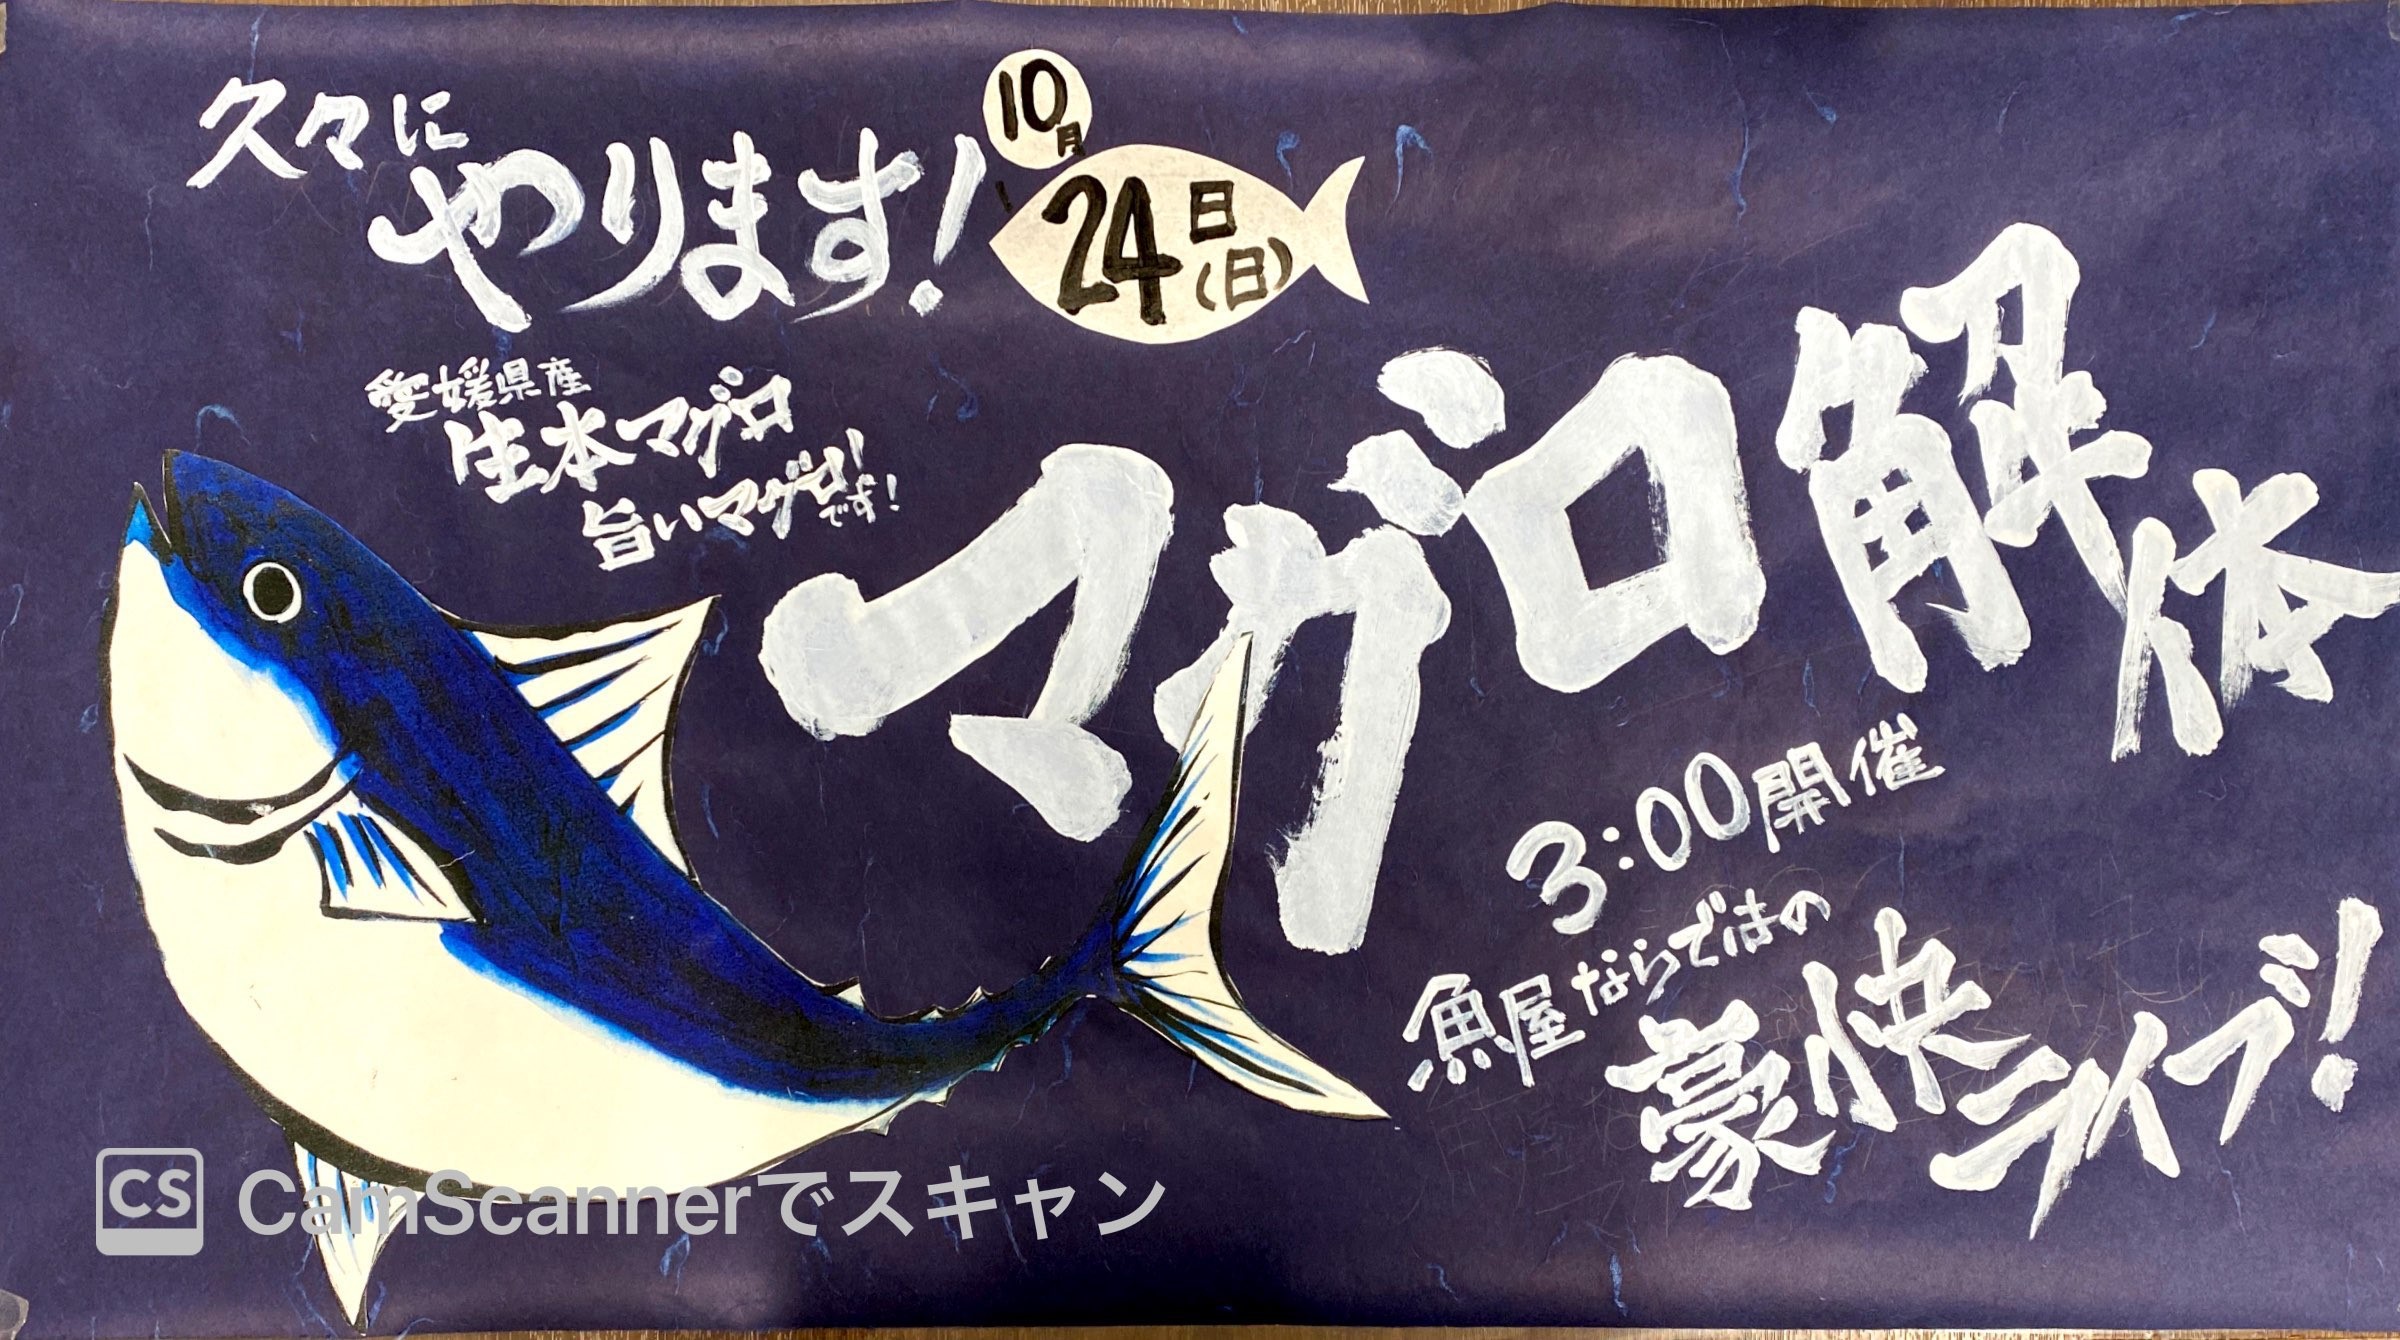 久々に
やります!
10月
24日
(日)
愛媛県産
生本マグロ
旨いマグロ!
です!
マグロ解体
3:00開催
魚屋ならではの
豪快ライブ!
CS CamScannerでスキャン